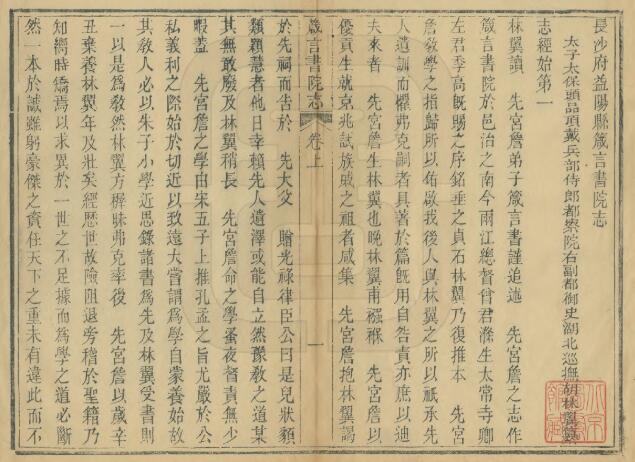 長沙府益陽縣箴言書院志
太子太保頭品頂戴兵部侍郎都察院右副都御史湖北巡撫胡林翼纂
志經始第一
林翼讀 先宮詹弟子箴言書謹追述 先宮詹之志作
箴言書院於邑治之南今兩江總督曾君滌生太常寺卿
左君季高既賜之序銘垂之貞石林翼乃復推本 先宮
詹教學之指歸所以佑啟我後人與林翼之所以祇承先
人遺訓而懼弗克嗣者具著於篇既用自告責亦庶以迪
夫來者 先宮詹生林翼也晚林翼甫襁褓 先宮詹以
優貢生就京兆試族戚之祖者咸集 先宮詹抱林翼謁
箴言書院志 卷上 一
於先祠而告於 先大父 贈光祿律臣公曰是兒狀貌
類穎慧者他日幸賴先人遺澤或能自立然豫教之道某
其無敢廢及林翼稍長 先宮詹命之學蚤夜督責無少
暇蓋 先宮詹之學由宋五子上推孔孟之旨尤嚴於公
私義利之際始於切近以致遠大嘗謂為學自蒙養始故
其教人必以朱子小學近思錄諸書為先及林翼受書則
一以是為教然林翼方穉昧弗克率後 先宮詹以歲辛
丑棄養林翼年及壯矣經歷世故險阻退旁稽於聖籍乃
知嚮時矯焉以求異於一世之不足據而為學之道必斷
然一本於誠雖躬豪傑之資任天下之重未有違此而不